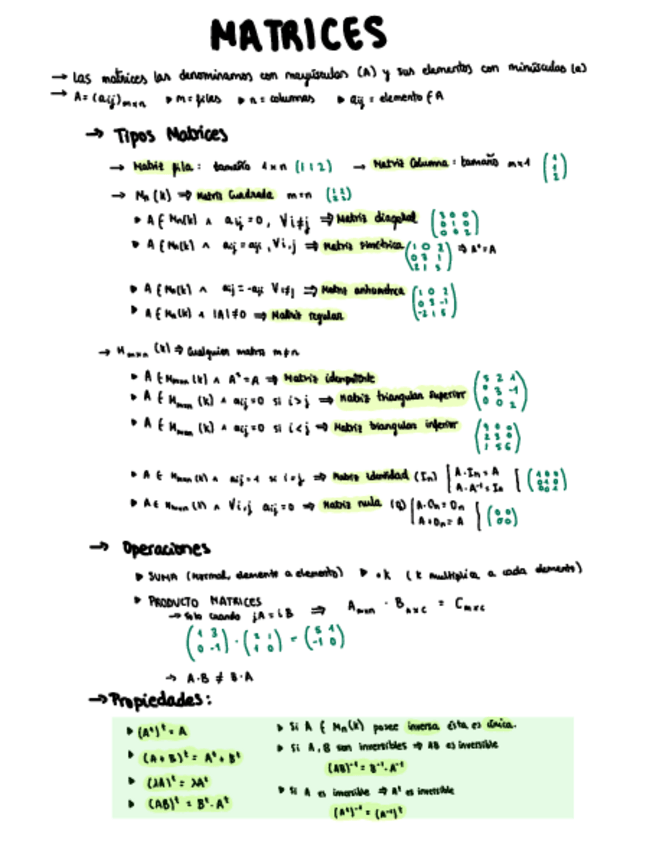 MATRICES
→ Las matrices las denominamos con mayúsculas (A) y sus elementos con minúsculas (a)
→ A = (aij)m×n ▸ m = filas ▸ n = columnas ▸ aij = elemento ∈ A
→ Tipos Matrices
→ Matriz fila: tamaño 1×n (1 1 2) → Matriz Columna: tamaño m×1
→ Mn(k) ⇒ Matriz Cuadrada m=n
▸ A ∈ Mn(k) ∧ aij = 0, ∀i≠j ⇒ Matriz diagonal
▸ A ∈ Mn(k) ∧ aij = aji, ∀i,j ⇒ Matriz simétrica ⇒ Aᵗ = A
▸ A ∈ Mn(k) ∧ aij = -aji ∀i≠j ⇒ Matriz
▸ A ∈ Mn(k) ∧ |A| ≠ 0 ⇒ Matriz regular
→ Mm×n (k) ⇒ Cualquier matriz m≠n
▸ A ∈ Mm×n (k) ∧ A² = A ⇒ Matriz
▸ A ∈ Mm×n (k) ∧ aij = 0 si i > j ⇒ Matriz triangular superior
▸ A ∈ Mm×n (k) ∧ aij = 0 si i < j ⇒ Matriz triangular inferior
▸ A ∈ Mm×n (k) ∧ aij = 1 si i = j ⇒ Matriz identidad (In) A·In = A
A·A⁻¹ = In
▸ A ∈ Mm×n (k) ∧ ∀i,j aij = 0 ⇒ Matriz nula (0) A·On = On
A+On = A
→ Operaciones
▸ SUMA (normal, elemento a elemento) ▸ ·k (k multiplica a cada elemento)
▸ PRODUCTO MATRICES
→ Solo cuando jA = iB ⇒ Am×n · Bn×c = Cm×c
→ A·B ≠ B·A
→ Propiedades:
▸ (Aᵗ)ᵗ = A
▸ (A+B)ᵗ = Aᵗ + Bᵗ
▸ (λA)ᵗ = λAᵗ
▸ (AB)ᵗ = Bᵗ·Aᵗ
▸ Si A ∈ Mn(k) posee inversa ésta es única.
▸ Si A, B son inversibles ⇒ AB es inversible
(AB)⁻¹ = B⁻¹·A⁻¹
▸ Si A es inversible ⇒ Aᵗ es inversible
(Aᵗ)⁻¹ = (A⁻¹)ᵗ